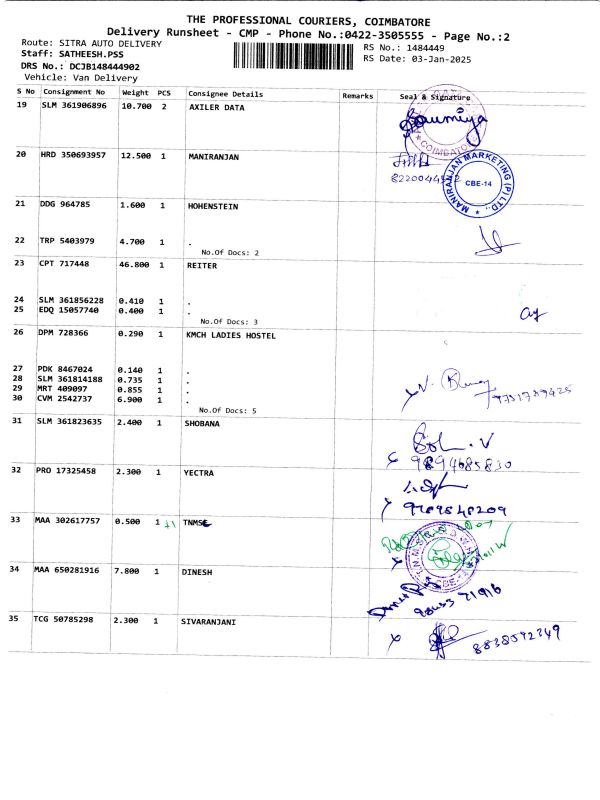 THE PROFESSIONAL COURIERS, COIMBATORE
Delivery Runsheet - CMP - Phone No.:0422-3505555 - Page No.:2
Route: SITRA AUTO DELIVERY
RS No.: 1484449
Staff: SATHEESH.PSS
RS Date: 03-Jan-2025
DRS No.: DCJB148444902
Vehicle: Van Delivery
S No Consignment No Weight PCS Consignee Details Remarks Seal & Signature
19 SLM 361906896 10.700 2 AXILER DATA
Sowmiya
COIMBATORE
20 HRD 350693957 12.500 1 MANIRANJAN
MANIRANJAN MARKETING (P) LTD.,
CBE-14
21 DDG 964785 1.600 1 HOHENSTEIN
22 TRP 5403979 4.700 1 .
No.Of Docs: 2
23 CPT 717448 46.800 1 REITER
24 SLM 361856228 0.410 1 .
25 EDQ 15057740 0.400 1 .
No.Of Docs: 3
26 DPM 728366 0.290 1 KMCH LADIES HOSTEL
27 PDK 8467024 0.140 1 .
28 SLM 361814188 0.735 1 .
29 MRT 409097 0.855 1 .
30 CVM 2542737 6.900 1 .
No.Of Docs: 5
9751789425
31 SLM 361823635 2.400 1 SHOBANA
9894685830
32 PRO 17325458 2.300 1 YECTRA
9789848209
33 MAA 302617757 0.500 1 TNMSC
34 MAA 650281916 7.800 1 DINESH
35 TCG 50785298 2.300 1 SIVARANJANI
8838592349